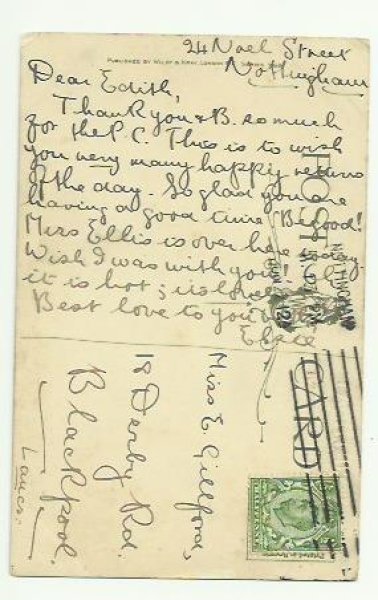 24 Noel Street
Nottingham
Dear Edith,
Thank you & B. so much
for the P.C. This is to wish
you very many happy returns
of the day. So glad you are
having a good time. Be good!
Miss Ellis is over here today.
Wish I was with you!
it is hot; it is
Best love to you
Elsie
POST CARD
NOTTINGHAM
Miss E. Gillford,
18 Derby Rd.
Blackpool.
Lancs.